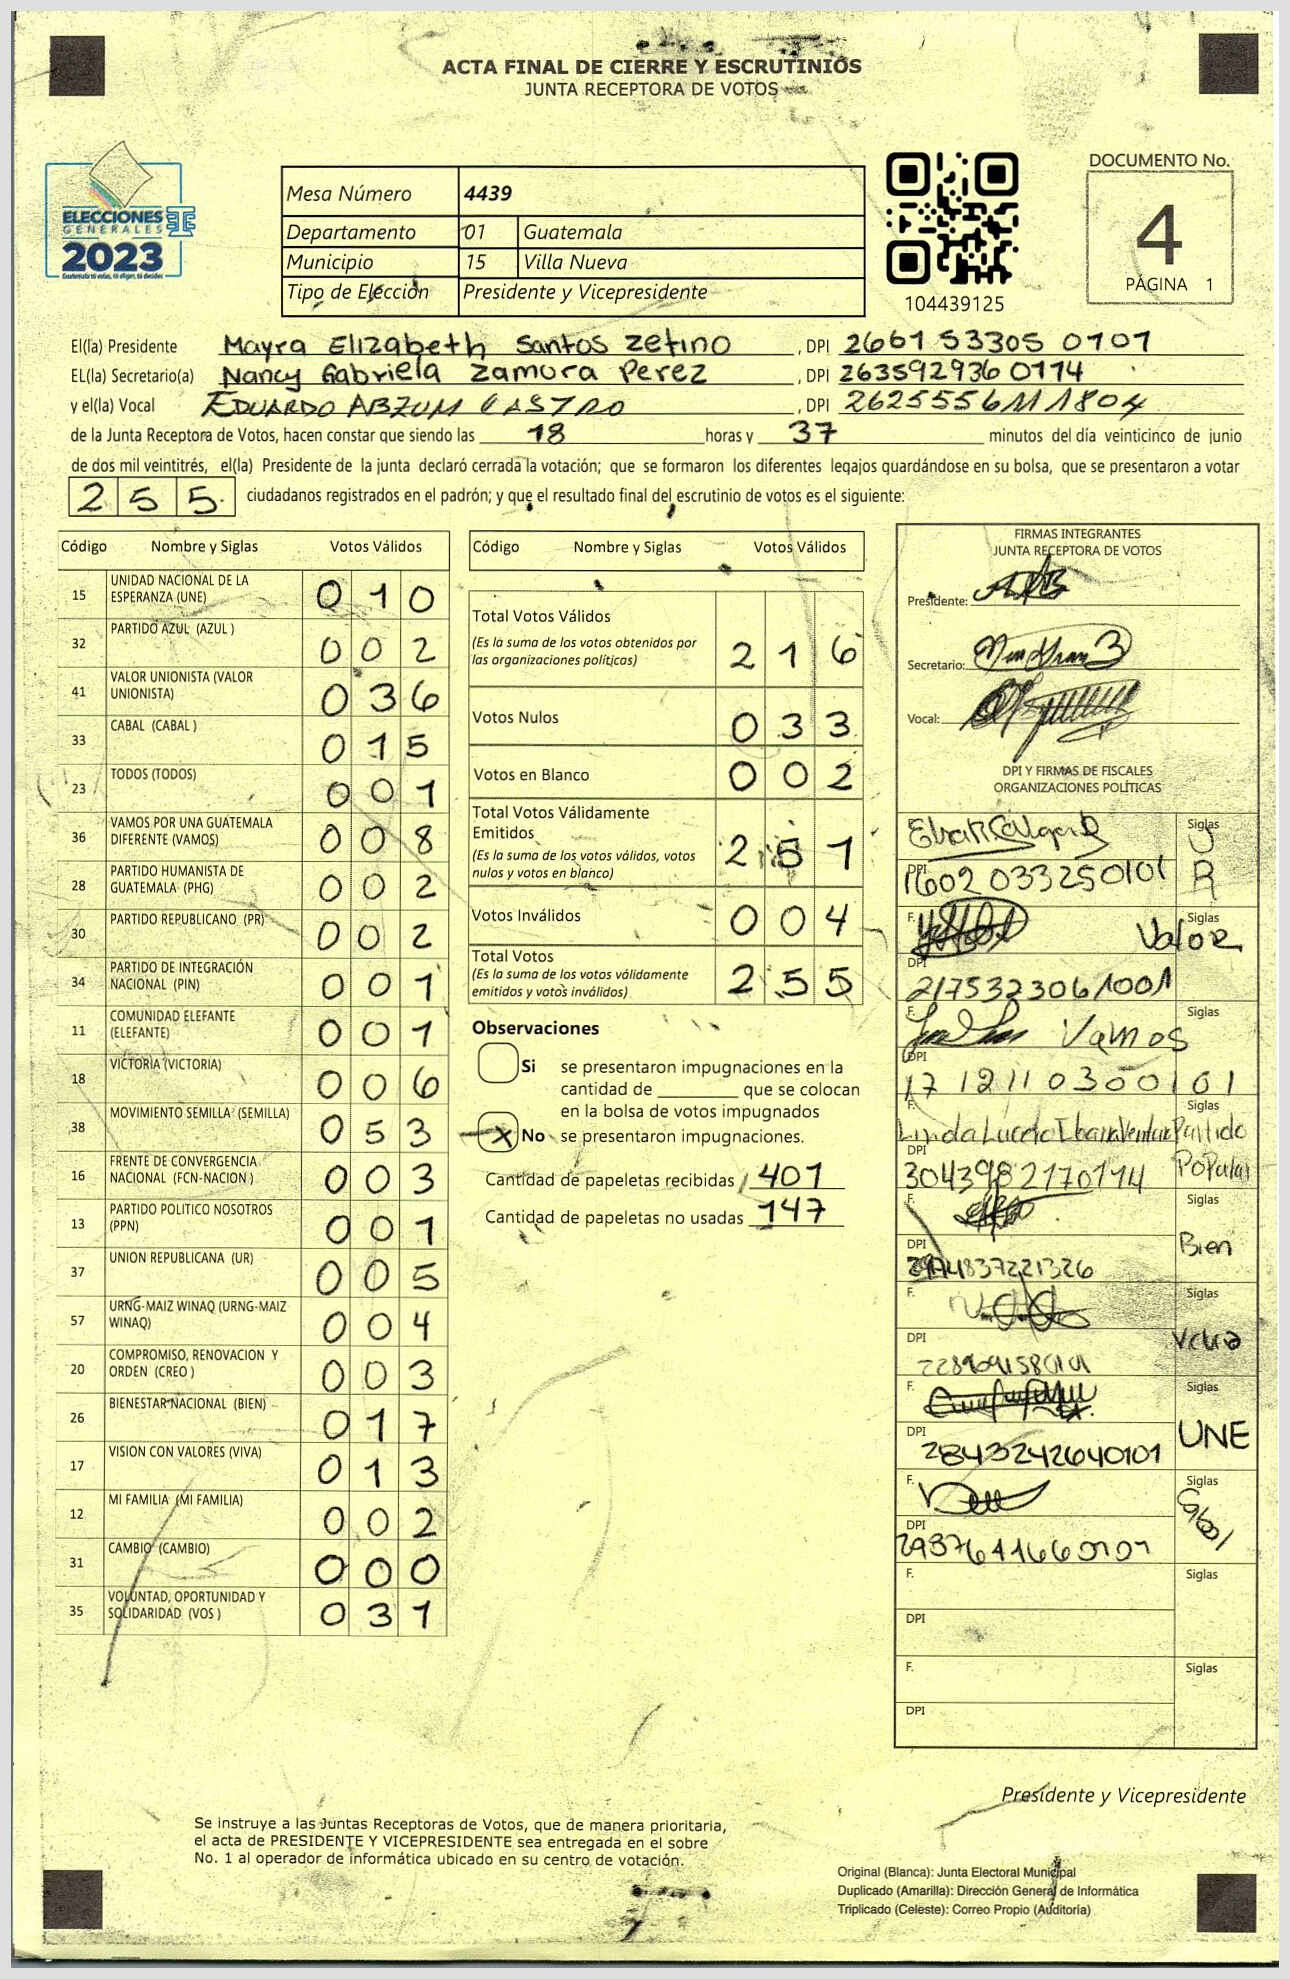 ACTA FINAL DE CIERRE Y ESCRUTINIOS
JUNTA RECEPTORA DE VOTOS
ELECCIONES
GENERALES
2023
Guatemala tú votas, tú eliges, tú decides
Mesa Número 4439
Departamento 01 Guatemala
Municipio 15 Villa Nueva
Tipo de Elección Presidente y Vicepresidente
104439125
DOCUMENTO No.
4
PÁGINA 1
El(la) Presidente Mayra Elizabeth Santos Zetino, DPI 2661 53305 0101
EL(la) Secretario(a) Nancy Gabriela Zamora Perez, DPI 263592936 0114
y el(la) Vocal EDUARDO CASTRO, DPI 2625556111804
de la Junta Receptora de Votos, hacen constar que siendo las 18 horas y 37 minutos del día veinticinco de junio
de dos mil veintitrés, el(la) Presidente de la junta declaró cerrada la votación; que se formaron los diferentes legajos guardándose en su bolsa, que se presentaron a votar
255 ciudadanos registrados en el padrón; y que el resultado final del escrutinio de votos es el siguiente:
Código Nombre y Siglas Votos Válidos
15 UNIDAD NACIONAL DE LA ESPERANZA (UNE) 010
32 PARTIDO AZUL (AZUL ) 002
41 VALOR UNIONISTA (VALOR UNIONISTA) 036
33 CABAL (CABAL ) 015
23 TODOS (TODOS) 001
36 VAMOS POR UNA GUATEMALA DIFERENTE (VAMOS) 008
28 PARTIDO HUMANISTA DE GUATEMALA (PHG) 002
30 PARTIDO REPUBLICANO (PR) 002
34 PARTIDO DE INTEGRACIÓN NACIONAL (PIN) 001
11 COMUNIDAD ELEFANTE (ELEFANTE) 001
18 VICTORIA (VICTORIA) 006
38 MOVIMIENTO SEMILLA (SEMILLA) 053
16 FRENTE DE CONVERGENCIA NACIONAL (FCN-NACION ) 003
13 PARTIDO POLITICO NOSOTROS (PPN) 001
37 UNION REPUBLICANA (UR) 005
57 URNG-MAIZ WINAQ (URNG-MAIZ WINAQ) 004
20 COMPROMISO, RENOVACION Y ORDEN (CREO ) 003
26 BIENESTAR NACIONAL (BIEN) 017
17 VISION CON VALORES (VIVA) 013
12 MI FAMILIA (MI FAMILIA) 002
31 CAMBIO (CAMBIO) 000
35 VOLUNTAD, OPORTUNIDAD Y SOLIDARIDAD (VOS ) 031
Código Nombre y Siglas Votos Válidos
Total Votos Válidos
(Es la suma de los votos obtenidos por
las organizaciones políticas) 216
Votos Nulos 033
Votos en Blanco 002
Total Votos Válidamente
Emitidos
(Es la suma de los votos válidos, votos
nulos y votos en blanco) 251
Votos Inválidos 004
Total Votos
(Es la suma de los votos válidamente
emitidos y votos inválidos) 255
Observaciones
Si se presentaron impugnaciones en la
cantidad de ________ que se colocan
en la bolsa de votos impugnados
X No se presentaron impugnaciones.
Cantidad de papeletas recibidas 401
Cantidad de papeletas no usadas 147
FIRMAS INTEGRANTES
JUNTA RECEPTORA DE VOTOS
Presidente:
Secretario:
Vocal:
DPI Y FIRMAS DE FISCALES
ORGANIZACIONES POLÍTICAS
Siglas UR
DPI 1602 033250101
F. Siglas Valor
DPI 2175323061001
F. Siglas Vamos
DPI 17 12110300101
F. Linda Lucero Ibarra Ventura Siglas Partido Popular
DPI 3043982170114
F. Siglas Bien
DPI
F. Siglas
DPI
F. Siglas UNE
DPI 2843242640101
F. Siglas Cabal
DPI 2937641660101
F. Siglas
DPI
F. Siglas
DPI
Presidente y Vicepresidente
Se instruye a las Juntas Receptoras de Votos, que de manera prioritaria,
el acta de PRESIDENTE Y VICEPRESIDENTE sea entregada en el sobre
No. 1 al operador de informática ubicado en su centro de votación.
Original (Blanca): Junta Electoral Municipal
Duplicado (Amarilla): Dirección General de Informática
Triplicado (Celeste): Correo Propio (Auditoría)